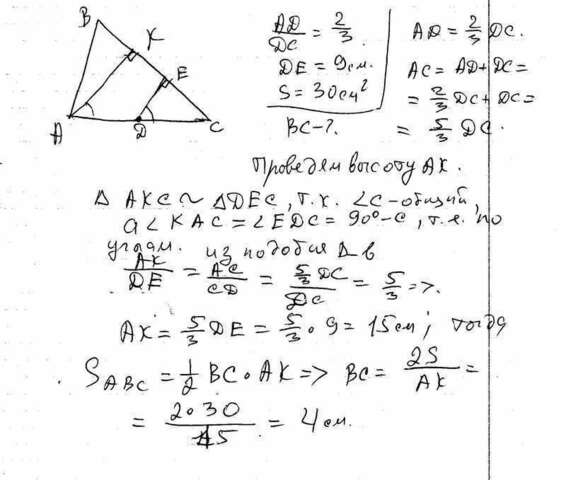 B
K
E
A
D
C
AD/DC = 2/3
DE = 9см.
S = 30см²
BC-?
AD = 2/3 DC.
AC = AD + DC =
= 2/3 DC + DC =
= 5/3 DC.
Проведём высоту AK.
Δ AKC ~ ΔDEC, т.к. ∠C-общий,
а ∠KAC = ∠EDC = 90°-C, т.е. по
углам. из подобия Δв
AK/DE = AC/CD = 5/3 DC/DC = 5/3 =>.
AK = 5/3 DE = 5/3 • 9 = 15см; тогда
S ABC = 1/2 BC • AK => BC = 2S/AK =
= 2•30/15 = 4см.